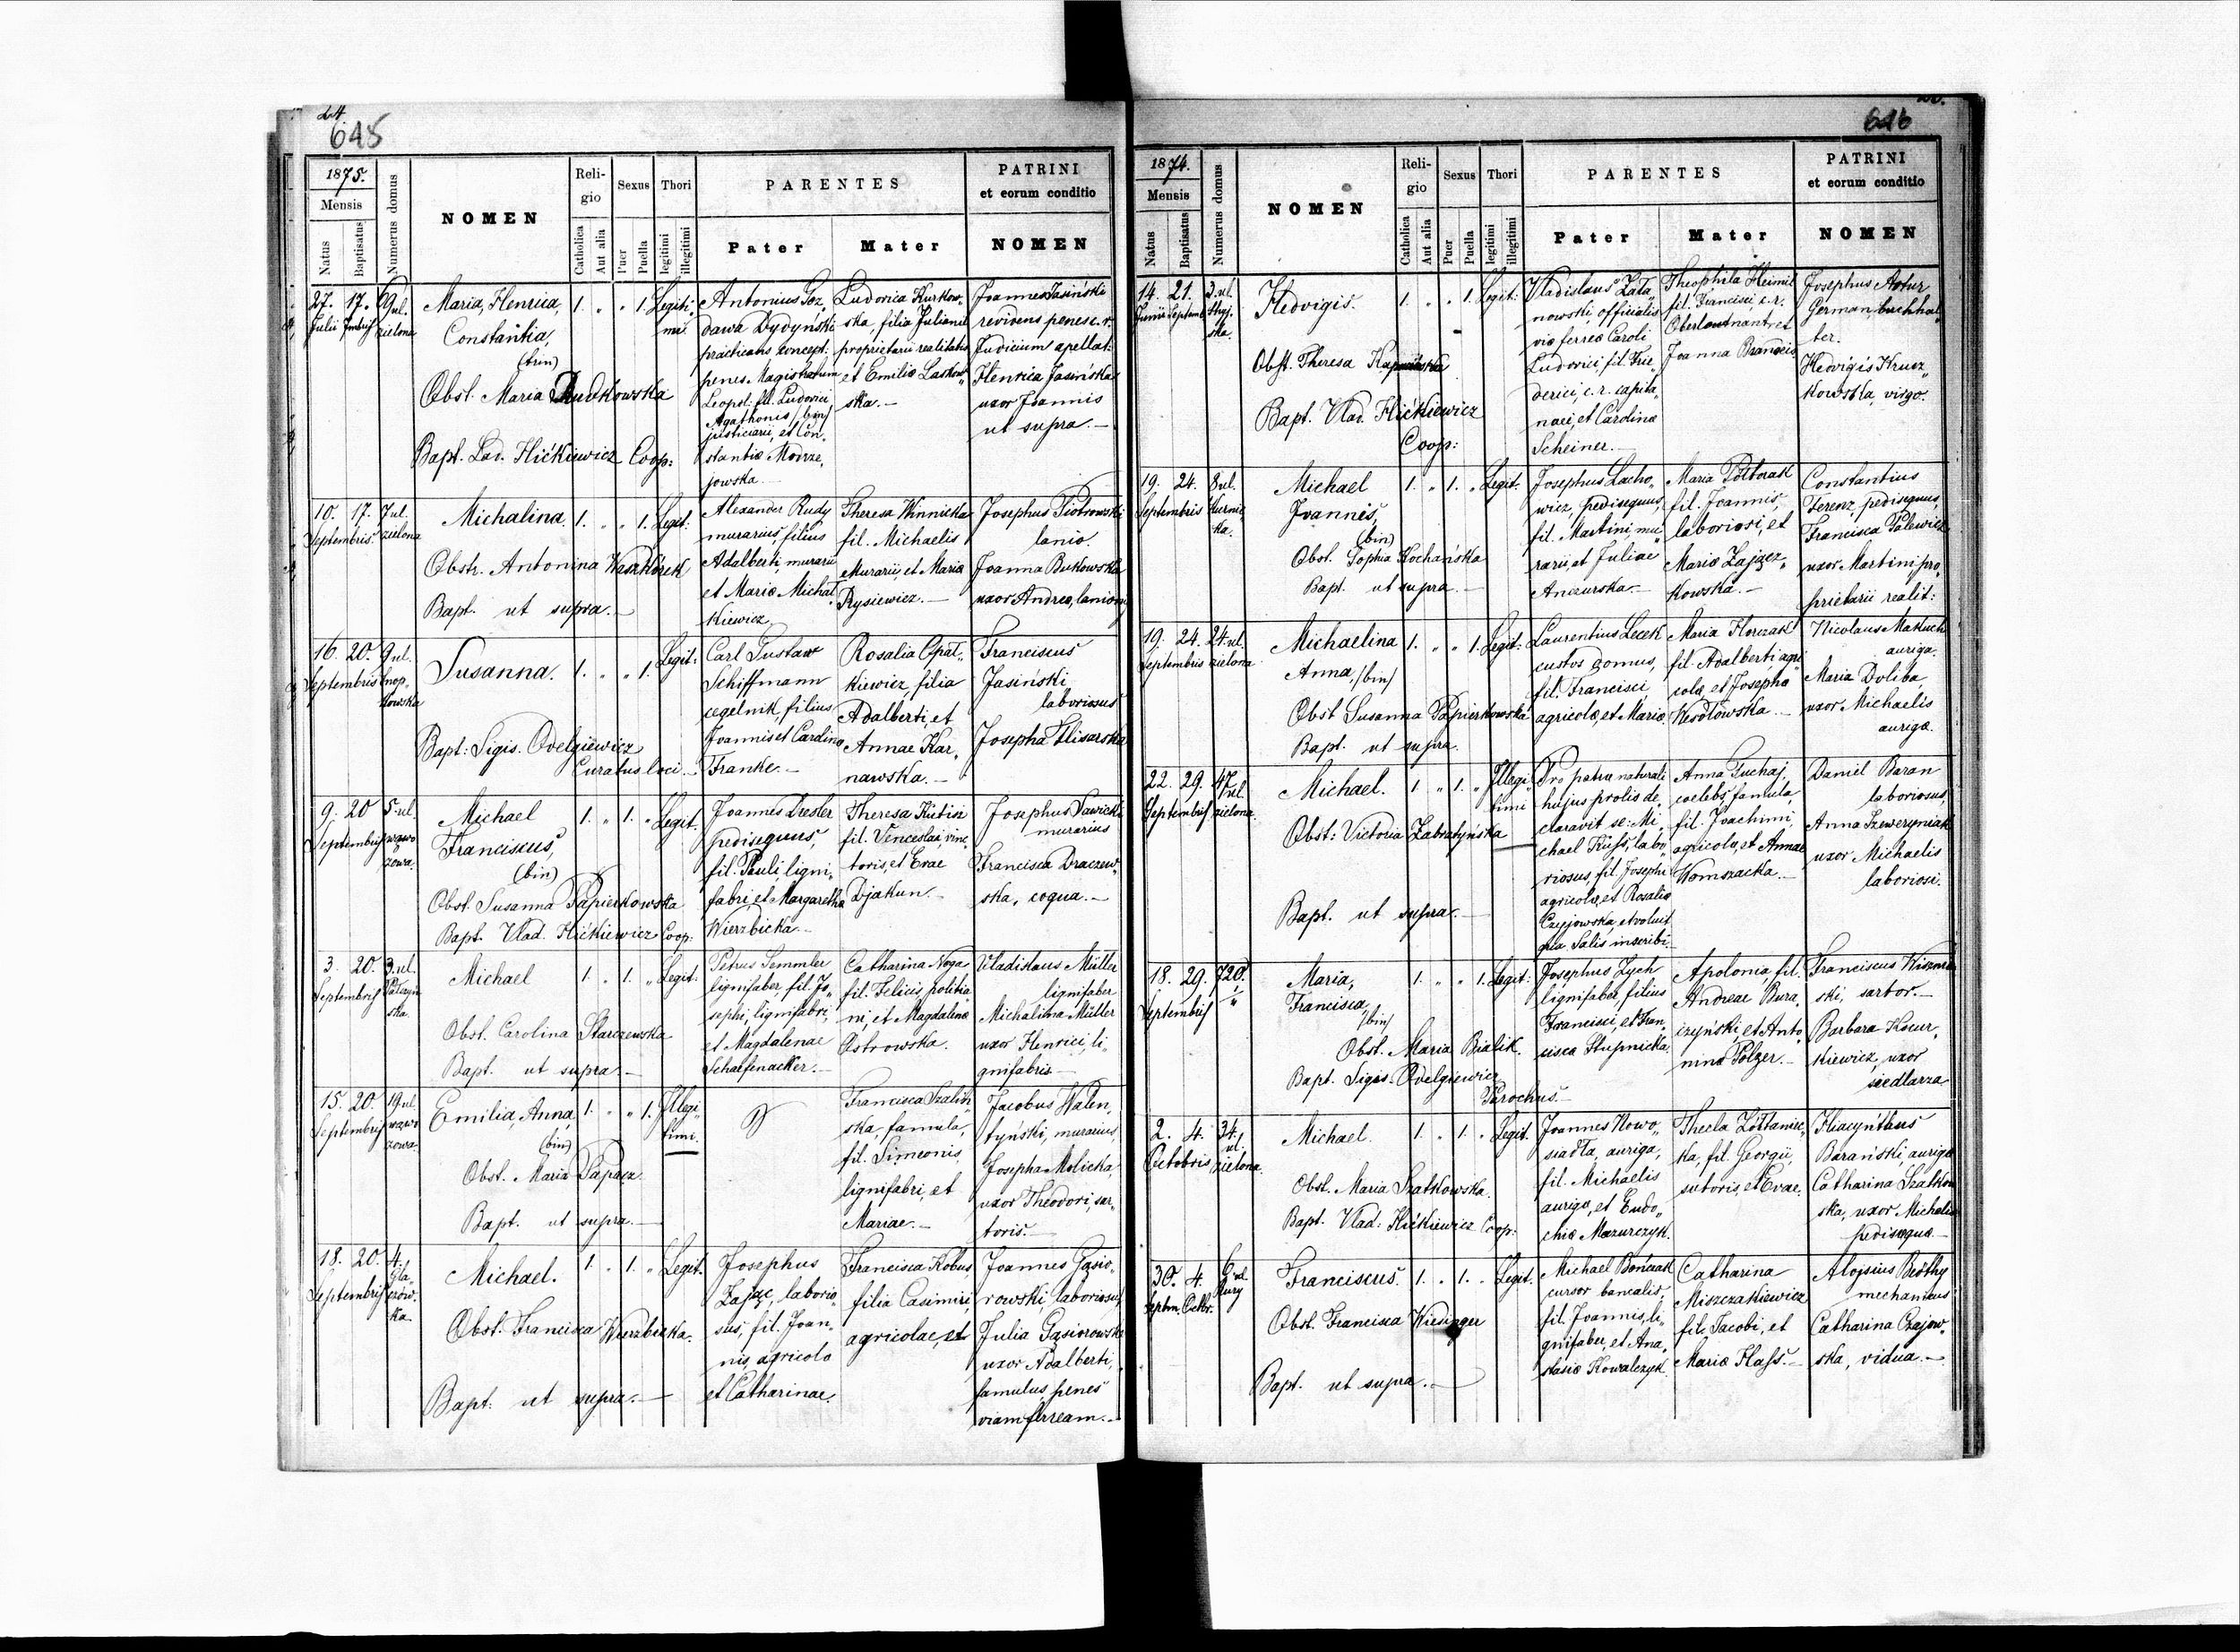 24
645
1875.
Mensis
Natus
Baptisatus
Numerus domus
NOMEN
Religio
Catholica
Aut alia
Sexus
Puer
Puella
Thori
legitimi
illegitimi
PARENTES
Pater
Mater
PATRINI
et eorum conditio
NOMEN
27. 17. 69 ul.
Julii 7mbris zielona
Maria, Henrica,
Constantia,
(trin)
Obst. Maria Rudkowska
Bapt. Lad. Hićkiewicz Coop:
1. „ „ 1. Legiti-
mi
Antonius Goz„
dawa Dydyński
practicans concept:
penes Magistratum
Leopol. fil. Ludovici
Agathonis (bin)
justiciarii, et Con„
stantiæ Modrze„
jowska
Ludovica Kurkow„
ska, filia Juliani
proprietarii realitatis
et Emiliæ Laskow„
ska.—
Joannes Jasiński
revivens penes c. r.
Judicium apellat:
Henrica Jasińska
uxor Joannis
ut supra.—
10. 17. 7 ul.
Septembris. zielona
Michalina.
Obstr. Antonina Waszkórek
Bapt. ut supra.—
1. „ „ 1. Legit:
Alexander Rudy
murarius, filius
Adalberti, murarii
et Mariæ Michał„
kiewicz.
Theresa Winnicka
fil. Michaelis
Murarii, et Mariæ
Rysiewicz.—
Josephus Piotrowski
lanio
Joanna Bukowska
uxor Andreæ, lanionis
16. 20. 9 ul.
Septembris
Susanna.
Bapt: Sigis. Odelgiewicz
Curatus loci.—
1. „ „ 1. Legit:
Carl Gustaw
Schiffmann
cegelnik, filius
Joannis et Carolinæ
Franke.—
Rosalia Opał„
kiewicz, filia
Adalberti, et
Annae Kar„
nawska.—
Franciscus
Jasiński
laboriosus
Josepha Flisarska
9. 20 5 ul.
Septembris
Michael
Franciscus,
(bin)
Obst. Susanna Papierkowska
Bapt. Vlad. Hićkiewicz Coop.
1. „ 1. „ Legit.
Joannes Dresler
pedisequus,
fil. Pauli, ligni„
fabri, et Margaretha
Wierzbicka.—
Theresa
fil. Venceslai, vinc„
toris, et Evae
Djakun.—
Josephus Sawicki
murarius
Francisca Draczew„
ska, coqua.—
3. 20. 3. ul.
Septembris
Michael
Obst. Carolina Starczewska
Bapt. ut supra.—
1. „ 1. „ Legit:
Petrus Semmler
lignifaber, fil. Jo„
sephi, lignifabri,
et Magdalenae
Scharfenacker.—
Catharina Noga
fil. Felicis, politia„
ni, et Magdalenæ
Ostrowska.
Vladislaus Müller
lignifaber
Michalina Müller
uxor Henrici, li„
gnifabris—
15. 20. 19 ul.
Septembris
Emilia, Anna,
(bin)
Obst. Maria Papacz
Bapt. ut supra.—
1. „ „ 1. Illegi„
timi.
Francisca Szaliń„
ska, famula,
fil. Simeonis,
lignifabri, et
Mariae.—
Jacobus Walen„
tyński, murarius,
Josepha Molicka,
uxor Theodori, sar„
toris.—
18. 20. 4.
Septembris
Michael.
Obst. Francisca Wierzbicka.
Bapt: ut supra.—
1. „ 1. „ Legit.
Josephus
Zając, laborio„
sus, fil. Joan„
nis, agricolæ
et Catharinae.
Francisca Kobus,
filia Casimiri
agricolae, et
Joannes Gąsio„
rowski, laboriosus
Julia Gąsiorowska
uxor Adalberti,
famulus penes
viam ferream.—
646
1874.
Mensis
Natus
Baptisatus
Numerus domus
NOMEN
Religio
Catholica
Aut alia
Sexus
Puer
Puella
Thori
legitimi
illegitimi
PARENTES
Pater
Mater
PATRINI
et eorum conditio
NOMEN
14. 21. 3. ul.
Junii Septemb
Hedvigis.
Obst. Theresa
Bapt. Vlad. Hićkiewicz
Coop:
1. „ „ 1. Legit:
Vladislaus Zała„
nowski, officialis
viæ ferreæ Caroli
Ludovici, fil. Frie„
derici, c. r. capita„
naei, et Carolinæ
Scheiner.—
Theophila Heimil
fil. Francisci, c. r.
Oberleutnant et
Joanna
Josephus Artur
German, buchhal„
ter.
Hedvigis Krucz„
kowska, virgo.
19. 24. 8 ul.
Septembris
Michael
Joannes,
(bin)
Obst. Sophia Kochańska
Bapt. ut supra.—
1. „ 1. „ Legit:
Josephus Lacho„
wicz, pedisequus,
fil. Martini, mu„
rarii, et Juliae
Anczurska.—
Maria Półtorak
fil. Joannis,
laboriosi, et
Mariæ Zającz„
kowska.—
Constantius
Ferenz, pedisequus,
Francisca Palewicz
uxor Martini pro„
prietarii realit:
19. 24. 24 ul.
Septembris zielona
Michaelina
Anna, (bin)
Obst Susanna Papierkowska
Bapt. ut supra.
1. „ „ 1. Legit:
Laurentius Lecek
custos domus,
fil. Francisci,
agricolæ, et Mariæ
Maria Florczak
fil. Adalberti agri„
colæ, et Josephæ
Wesołowska.—
Nicolaus Makuch
auriga.
Maria Doliba,
uxor Michaelis
aurigæ.
22. 29. 47 ul.
Septembris zielona
Michael.
Obst: Victoria Zabratyńska
Bapt. ut supra.—
1. „ 1. „ Illegi„
timi
Pro patre naturali
hujus prolis de„
claravit se: Mi„
chael Kuss, labo„
riosus, fil. Josephi
agricolæ, et Rosaliæ
Czyjowska, et voluit
qua talis inscribi.—
Anna Tuchaj,
coelebs, famula,
fil. Joachimi,
agricolæ, et Annae
Womszacka.—
Daniel Baran
laboriosus,
Anna Szeweryniak
uxor Michaelis
laboriosi.
18. 29. 720.
Septembris
Maria,
Francisca,
(bin)
Obst. Maria Bialik.
Bapt. Sigis. Odelgiewicz
Parochus.—
1. „ „ 1. Legit:
Josephus Zych
lignifaber, filius
Francisci, et Fran„
cisca Stupnicka.
Apolonia, fil.
Andreae Bura„
czyński, et Anto„
nina Polzer.—
Franciscus Wiszniew
ski, sartor.—
Barbara Kocur„
kiewicz, uxor
siedlarza
2. 4. 34.
ul.
Octobris zielona.
Michael.
Obst. Maria Szatkowska.
Bapt. Vlad: Hićkiewicz Coop:
1. „ 1. „ Legit.
Joannes Nowo„
siadła, auriga,
fil. Michaelis
aurigæ, et Eudo„
chiæ Mazurczyk.
Thecla Żółtaniec„
ka, fil. Georgii,
sutoris, et Evae.
Hiacynthus
Barański, auriga
Catharina Szatkow
ska, uxor Michaelis
pedisequæ.—
30. 4. 6 ul.
Septem. Octbr. Rury
Franciscus.
Obst. Francisca Wiesinger
Bapt. ut supra.—
1. „ 1. „ Legit.
Michael Bończak
cursor bancalis,
fil. Joannis, li„
gnifaber, et Ana„
stasiæ Kowalczyk.
Catharina
Miszczakiewicz
fil. Jacobi, et
Mariæ Hass.—
Aloysius Beöthy
mechanicus
Catharina Czajow„
ska, vidua.—